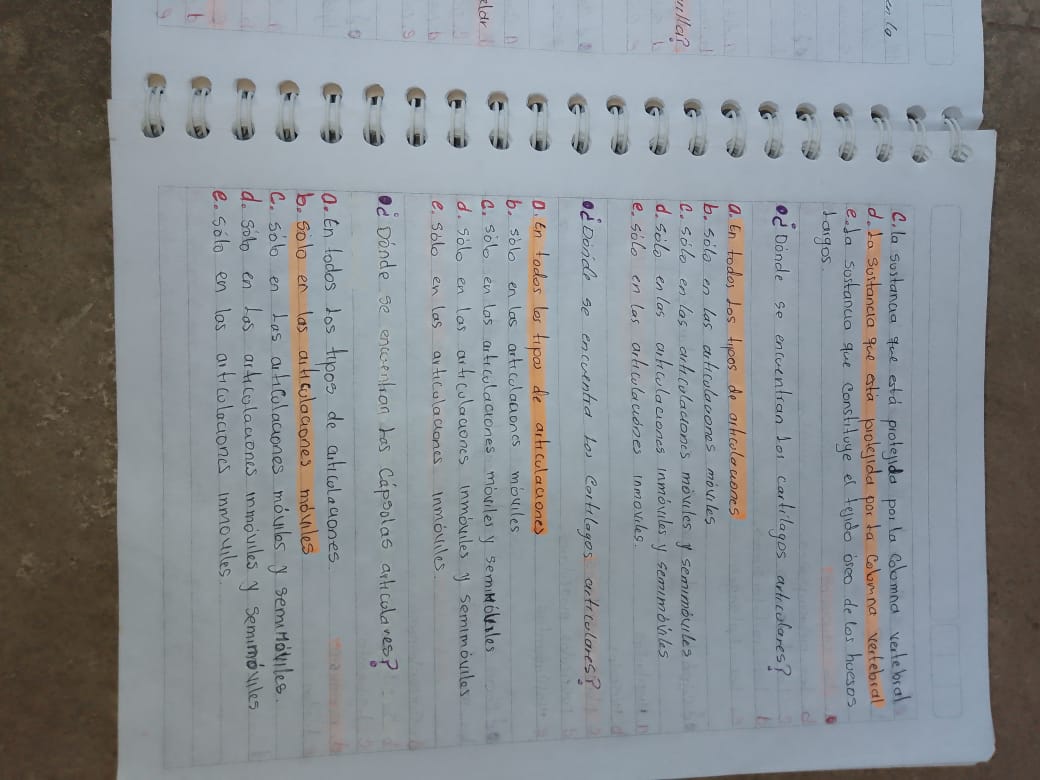 c. la sustancia que está protejida por la columna vertebral
d. La sustancia que está protejida por la columna vertebral
e. La sustancia que constituye el tejido óseo de los huesos
largos.
¿Dónde se encuentran los cartílagos articulares?
a. En todos los tipos de articulaciones
b. sólo en las articulaciones móviles
c. sólo en las articulaciones móviles y semimóviles
d. sólo en las articulaciones inmóviles y semimóviles
e. sólo en las articulaciones inmoviles.
¿Dónde se encuentra los cartílagos articulares?
a. En todos los tipos de articulaciones
b. sólo en las articulaciones móviles
c. sólo en las articulaciones móviles y semimóviles
d. sólo en las articulaciones inmóviles y semimóviles
e. sólo en las articulaciones inmóviles.
¿Dónde se encuentran las cápsulas articulares?
a. En todos los tipos de articulaciones.
b. sólo en las articulaciones móviles
c. sólo en las articulaciones móviles y semimóviles.
d. sólo en las articulaciones inmóviles y semimóviles
e. sólo en las articulaciones inmoviles.